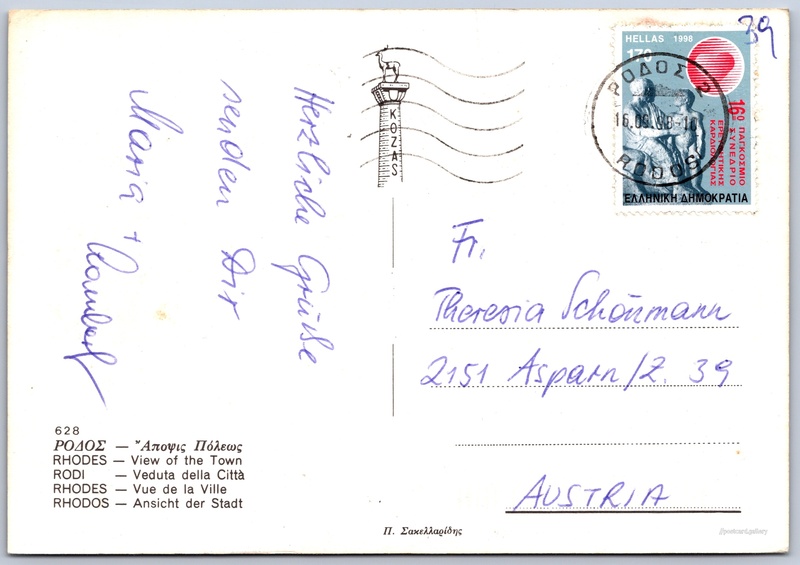 39
HELLAS 1998
170
16ο ΠΑΓΚΟΣΜΙΟ
ΣΥΝΕΔΡΙΟ
ΕΡΕΥΝΗΤΙΚΗΣ
ΚΑΡΔΙΟΛΟΓΙΑΣ
ΕΛΛΗΝΙΚΗ ΔΗΜΟΚΡΑΤΙΑ
ΡΟΔΟΣ 2
16.09.98-16
RODOS
KOZAS
Herzliche Grüße
senden Dir
Maria +
Fr.
Theresia Schönmann
2151 Asparn/Z. 39
AUSTRIA
628
ΡΟΔΟΣ — Ἄποψις Πόλεως
RHODES — View of the Town
RODI — Veduta della Città
RHODES — Vue de la Ville
RHODOS — Ansicht der Stadt
Π. Σακελλαρίδης